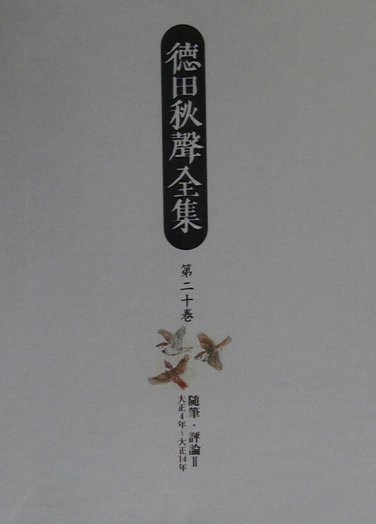 徳田秋聲全集
第二十巻
随筆・評論Ⅱ
大正4年~大正14年